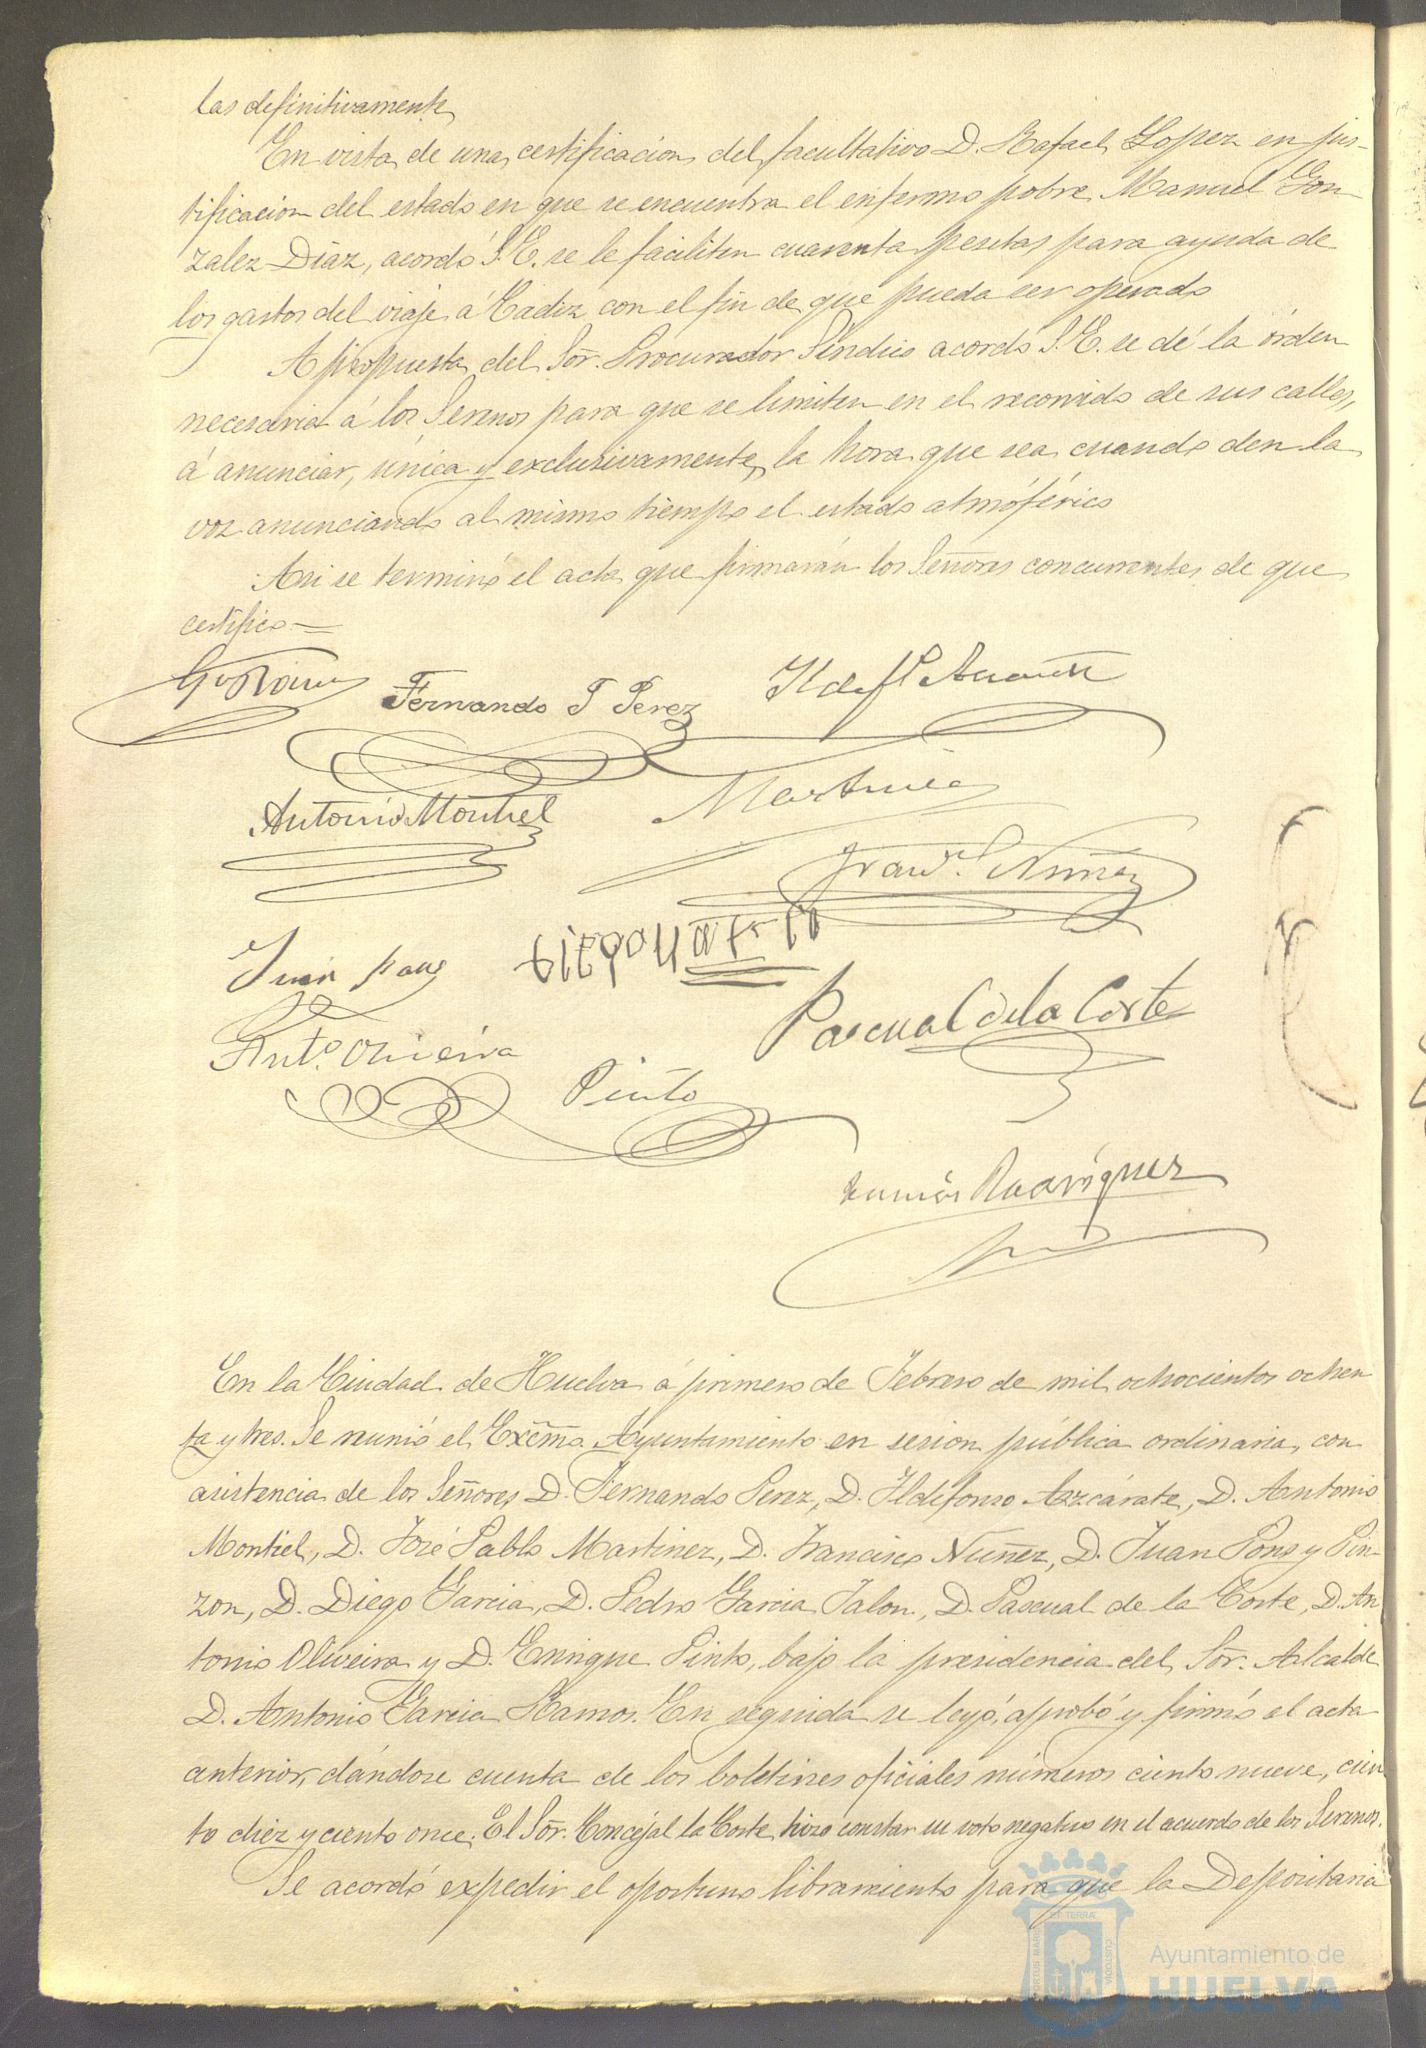 las definitivamente
En vista de una certificación del facultativo D. Rafael Lopez en jus-
tificacion del estado en que se encuentra el enfermo pobre Manuel Gon
zalez Diaz, acordó S.E. se le faciliten cuarenta pesetas para ayuda de
los gastos del viaje á Cadiz con el fin de que pueda ser operado
A propuesta del Sor. Procurador Síndico acordó S.E. se dé la órden
necesaria á los Serenos para que se limiten en el recorrido de sus calles,
á anunciar, única y exclusivamente, la hora que sea cuando den la
voz anunciando al mismo tiempo el estado atmósférico
Asi se terminó el acta que firmarán los Señores concurrentes de que
certifico =
Fernando T Perez
Antonio Montiel
Martinez
Franco. Nuñez
Juan pons
Pascual de la Corte
Anto. Oliveira
Pinto
Rodriguez
En la Ciudad de Huelva á primero de Febrero de mil ochocientos ochen
ta y tres. Se reunió el Excmo. Ayuntamiento en sesion pública ordinaria, con
asistencia de los Señores D. Fernando Perez, D. Ildefonso Azcárate, D. Antonio
Montiel, D. José Pablo Martinez, D. Francisco Nuñez, D. Juan Pons y Pin-
zon, D. Diego Garcia, D. Pedro Garcia Jalon, D. Pascual de la Corte, D. An
tonio Oliveira y D. Enrique Pinto, bajo la presidencia del Sor. Alcalde
D. Antonio Garcia Ramos. En seguida se leyó, aprobó y firmó el acta
anterior, dándose cuenta de los boletines oficiales números ciento nueve, cien
to diez y ciento once. El Sor. Concejal la Corte hizo constar su voto negativo en el acuerdo de los Serenos.
Se acordó expedir el oportuno libramiento para que la Depositaria
Ayuntamiento de
HUELVA